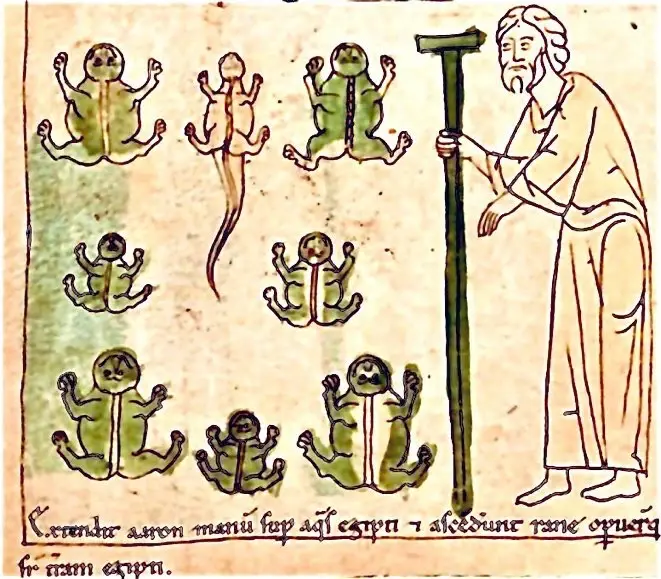 Extendit aaron manū sup aq̄s egipti ⁊ ascēdunt rane opuerūq
sr̄ t̄ram egipti.